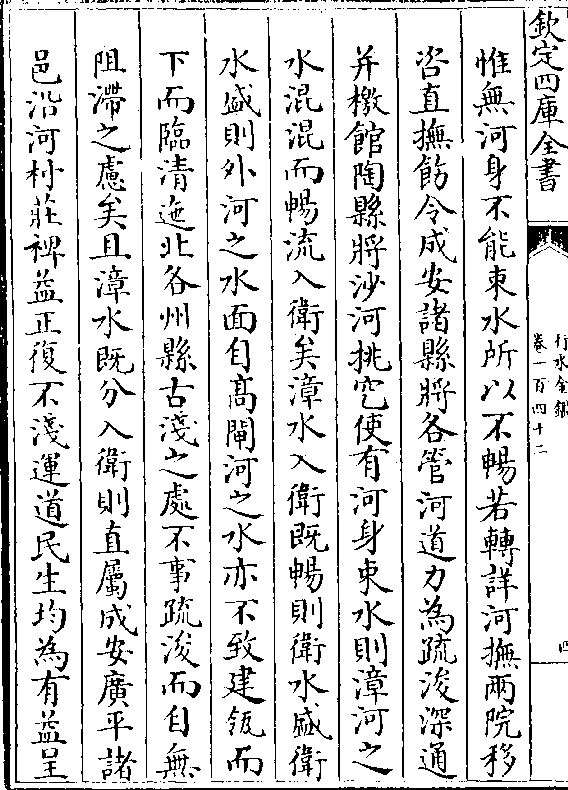 欽定四庫全書
行水金鑑
卷一百四十二
四
惟無河身不能束水所以不暢若轉詳河撫兩院移
咨直撫飭令成安諸縣將各管河道力為疏浚深通
并檄館陶縣將沙河挑空使有河身束水則漳河之
水混混而暢流入衛矣漳水入衛既暢則衛水盛衛
水盛則外河之水面自髙閘河之水亦不致建瓴而
下而臨清迤北各州縣古淺之處不事疏浚而自無
阻滯之慮矣且漳水既分入衛則直屬成安廣平諸
邑沿河村莊裨益正復不淺運道民生均為有益呈